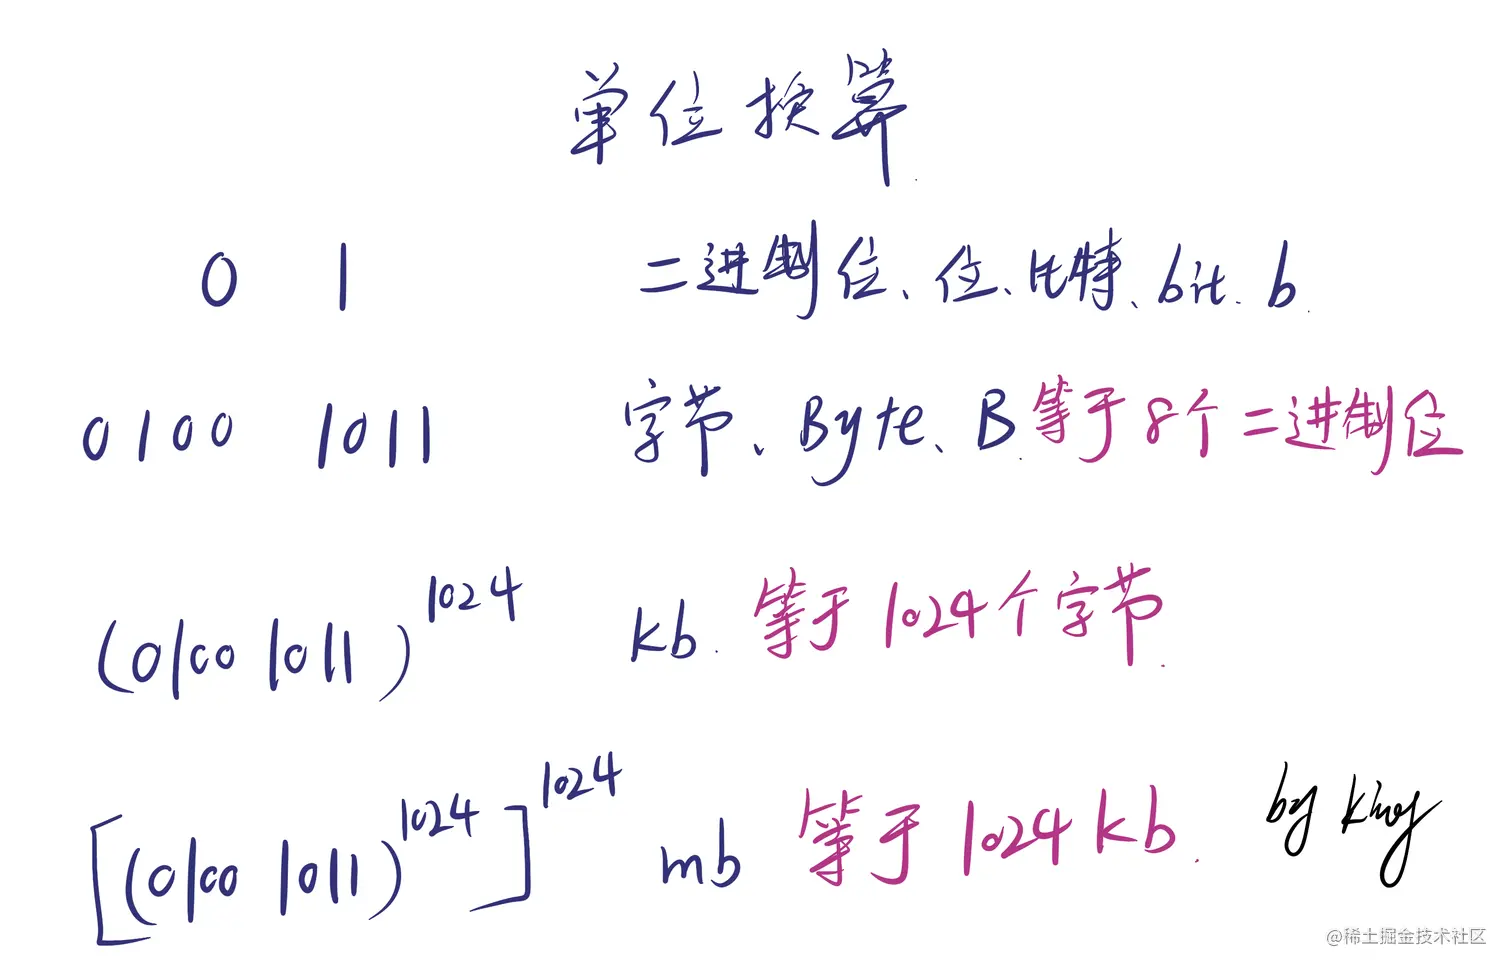 单位换算
0 1 二进制位、位、比特、bit、b
0100 1011 字节、Byte、B 等于8个二进制位
(0100 1011)^1024 kb 等于1024个字节
[(0100 1011)^1024]^1024 mb 等于1024kb
by
@稀土掘金技术社区